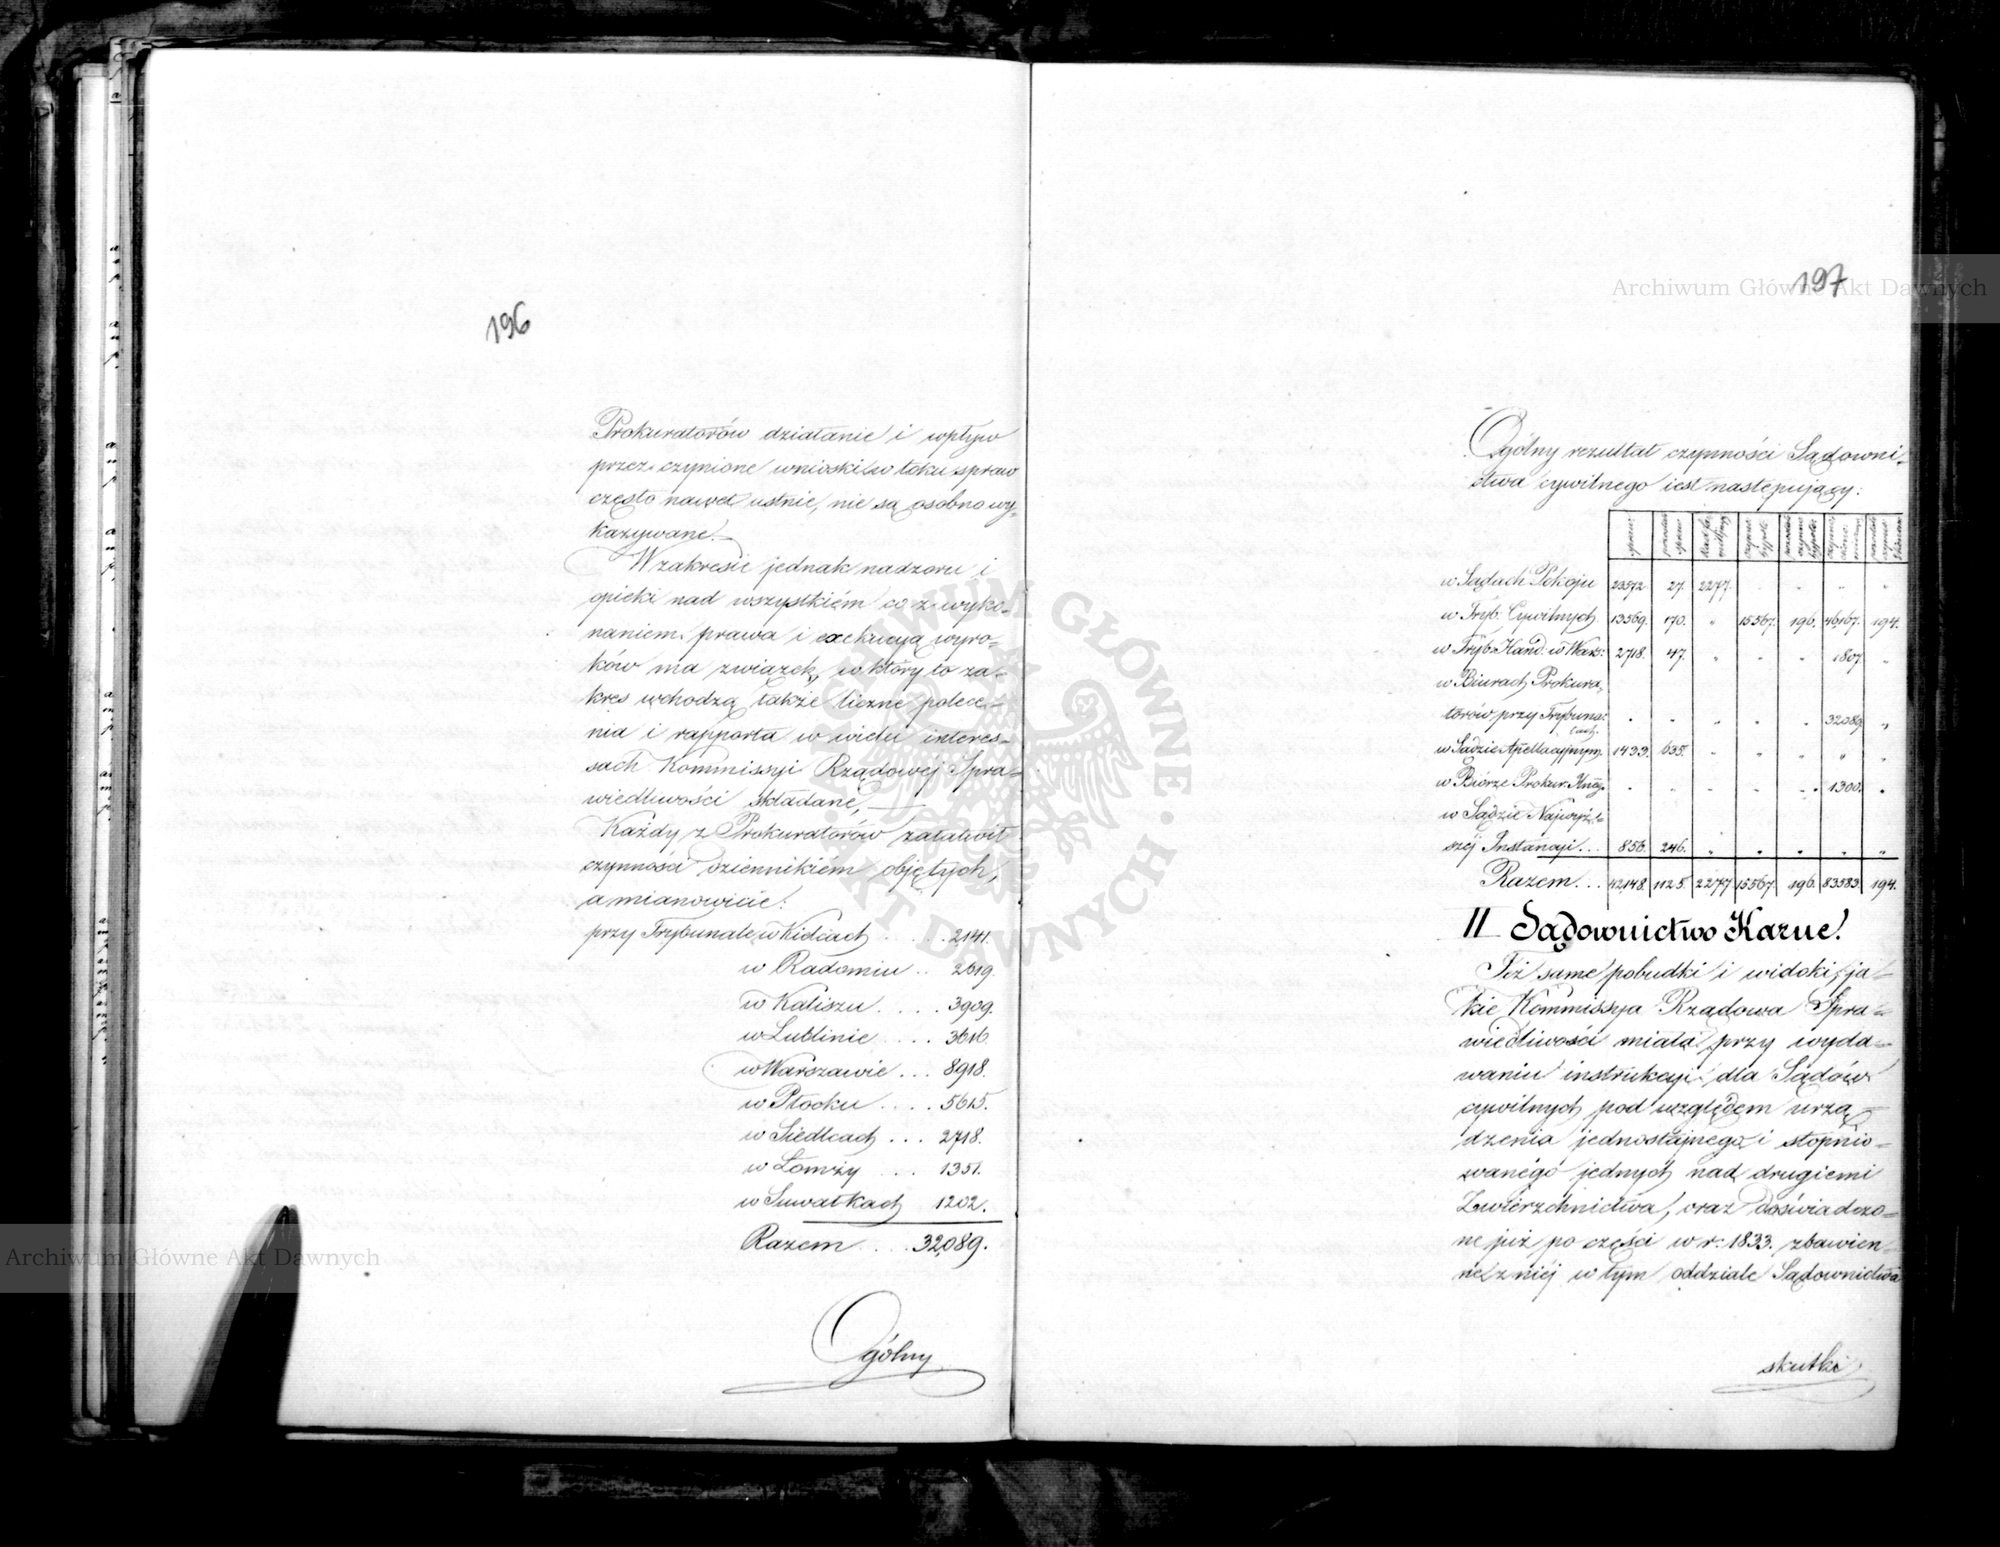 196
Prokuratorów działanie i wpływ
przez czynione wnioski w toku spraw
często nawet ustnie, nie są osobno wy-
kazywane.
W zakresie jednak nadzoru i
opieki nad wszystkiém co z wyko-
naniem prawa i exekucyą wyro-
ków ma związek, w który to za-
kres wchodzą także liczne polece-
nia i rapporta w wielu interes-
sach Kommissyi Rządowej Spra-
wiedliwości składane,
Każdy z Prokuratorów załatwił
czynności dziennikiém objętych,
a mianowicie:
przy Trybunale w Kielcach ..... 2141.
w Radomiu .. 2619.
w Kaliszu .... 3909.
w Lublinie .... 3616.
w Warszawie ... 8918.
w Płocku .... 5615.
w Siedlcach ... 2718.
w Łomży ... 1351.
w Suwałkach 1202.
Razem .... 32089.
Ogólny
197
Ogólny rezultat czynności Sądowni-
ctwa cywilnego iest następujący:
w Sądach Pokoju 23572. 27. 2277. . " " "
w Tryb: Cywilnych 13569. 170. " 15567. 196. 46167. 194.
w Tryb: Hand: w Wars: 2718. 47. " " " 1807. "
w Biurach Prokura-
torów przy Trybuna:
lach. " " " " " 32089. "
w Sądzie Apellacyjnym. 1433. 635. " " " " "
w Biórze Prokur: " " " " " 1300. "
w Sądzie Najwyż-
széj Instancyi... 856. 246. " " " " "
Razem... 42,148. 1125. 2277. 15567. 196. 83583. 194.
II Sądownictwo Karne.
Też same pobudki i widoki, ja-
kie Kommissya Rządowa Spra-
wiedliwości miała przy wyda-
waniu instrukcyi dla Sądów
cywilnych pod względem urzą-
dzenia jednostajnego i stopnio-
wanégo jednych nad drugiemi
Zwierzchnictwa, oraz doświadczo-
ne już po części w r: 1833. zbawien-
ne z niéj w tym oddziale Sądownictwa
skutki
Archiwum Główne Akt Dawnych
Archiwum Główne Akt Dawnych
ARCHIWUM GŁÓWNE · AKT DAWNYCH ·